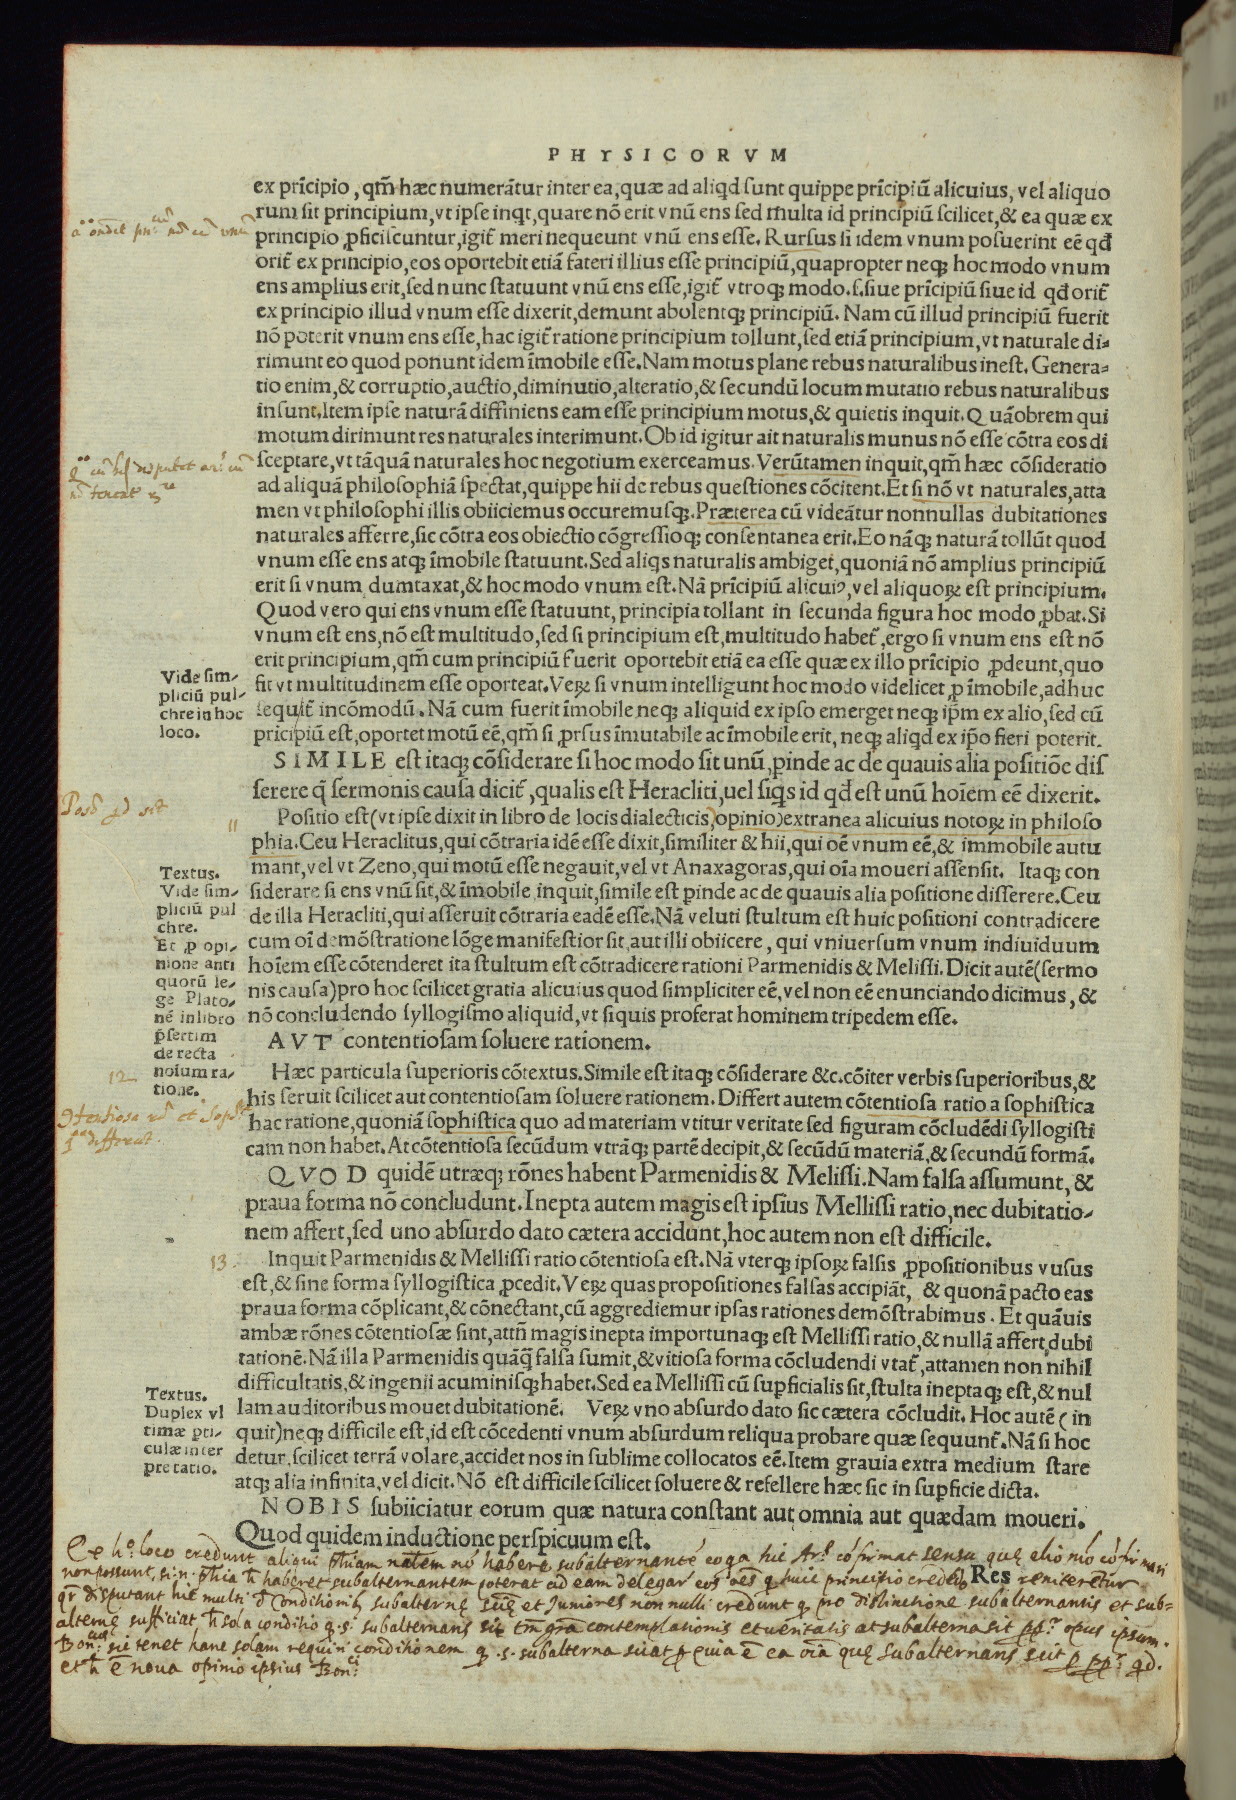 PHYSICORVM
ex prĩcipio, qm̃ hæc numerãtur inter ea, quæ ad aliqd sunt quippe prĩcipiũ alicuius, vel aliquo
rum sit principium, vt ipse inqt, quare nõ erit vnũ ens sed multa id principiũ scilicet, & ea quæ ex
principio ꝓficiscuntur, igit̃ meri nequeunt vnũ ens esse. Rursus si idem vnum posuerint eẽ qđ
orit̃ ex principio, eos oportebit etiã fateri illius esse principiũ, quapropter neqꝫ hoc modo vnum
ens amplius erit, sed nunc statuunt vnũ ens esse, igit̃ vtroqꝫ modo. s. siue prĩcipiũ siue id qđ orit̃
ex principio illud vnum esse dixerit, demunt abolentqꝫ principiũ. Nam cũ illud principiũ fuerit
nõ poterit vnum ens esse, hac igit̃ ratione principium tollunt, sed etiã principium, vt naturale di-
rimunt eo quod ponunt idem ĩmobile esse. Nam motus plane rebus naturalibus inest. Genera-
tio enim, & corruptio, auctio, diminutio, alteratio, & secundũ locum mutatio rebus naturalibus
insunt. Item ipse naturã diffiniens eam esse principium motus, & quietis inquit. Quãobrem qui
motum dirimunt res naturales interimunt. Ob id igitur ait naturalis munus nõ esse cõtra eos di
sceptare, vt tãquã naturales hoc negotium exerceamus. Verũtamen inquit, qm̃ hæc cõsideratio
ad aliquã philosophiã spectat, quippe hii de rebus questiones cõcitent. Et si nõ vt naturales, atta
men vt philosophi illis obiiciemus occuremusqꝫ. Præterea cũ videãtur nonnullas dubitationes
naturales afferre, sic cõtra eos obiectio cõgressioqꝫ consentanea erit. Eo nãqꝫ naturã tollũt quod
vnum esse ens atqꝫ ĩmobile statuunt. Sed aliqs naturalis ambiget, quoniã nõ amplius principiũ
erit si vnum dumtaxat, & hoc modo vnum est. Nã prĩcipiũ alicuiꝰ, vel aliquoꝝ est principium.
Quod vero qui ens vnum esse statuunt, principia tollant in secunda figura hoc modo ꝓbat. Si
vnum est ens, nõ est multitudo, sed si principium est, multitudo habet̃, ergo si vnum ens est nõ
erit principium, qm̃ cum principiũ fuerit oportebit etiã ea esse quæ ex illo prĩcipio ꝓdeunt, quo
fit vt multitudinem esse oporteat. Veꝝ si vnum intelligunt hoc modo videlicet ꝓ ĩmobile, adhuc
sequit̃ incõmodũ. Nã cum fuerit ĩmobile neqꝫ aliquid ex ipso emerget neqꝫ ip̃m ex alio, sed cũ
pricipiũ est, oportet motũ eẽ, qm̃ si ꝓrsus ĩmutabile ac ĩmobile erit, neqꝫ aliqd ex ip̃o fieri poterit.
Vide sim-
pliciũ pul-
chre in hoc
loco.
SIMILE est itaqꝫ cõsiderare si hoc modo sit unũ, ꝑinde ac de quauis alia positiõe dis
serere q̃ sermonis causa dicit̃, qualis est Heracliti, uel siqs id qđ est unũ hoĩem eẽ dixerit.
11
Positio est (vt ipse dixit in libro de locis dialecticis, opinio) extranea alicuius notoꝝ in philoso
phia. Ceu Heraclitus, qui cõtraria idẽ esse dixit, similiter & hii, qui oẽ vnum eẽ, & immobile autu
mant, vel vt Zeno, qui motũ esse negauit, vel vt Anaxagoras, qui oĩa moueri assensit. Itaqꝫ con
siderare si ens vnũ sit, & ĩmobile inquit, simile est ꝑinde ac de quauis alia positione disserere. Ceu
de illa Heracliti, qui asseruit cõtraria eadẽ esse. Nã veluti stultum est huic positioni contradicere
cum oĩ demõstratione lõge manifestior sit, aut illi obiicere, qui vniuersum vnum indiuiduum
hoĩem esse cõtenderet ita stultum est cõtradicere rationi Parmenidis & Melissi. Dicit autẽ (sermo
nis causa) pro hoc scilicet gratia alicuius quod simpliciter eẽ, vel non eẽ enunciando dicimus, &
nõ concludendo syllogismo aliquid, vt siquis proferat hominem tripedem esse.
Textus.
Vide sim-
pliciũ pul
chre.
Et ꝓ opi-
nione anti
quorũ le-
ge Plato-
nẽ in libro
p̃sertim
de recta
noĩum ra-
tione.
AVT contentiosam soluere rationem.
12
Hæc particula superioris cõtextus. Simile est itaqꝫ cõsiderare &c. cõiter verbis superioribus, &
his seruit scilicet aut contentiosam soluere rationem. Differt autem cõtentiosa ratio a sophistica
hac ratione, quoniã sophistica quo ad materiam vtitur veritate sed figuram cõcludẽdi syllogisti
cam non habet. At cõtentiosa secũdum vtrãqꝫ partẽ decipit, & secũdũ materiã, & secundũ formã.
QVOD quidẽ utræqꝫ rõnes habent Parmenidis & Melissi. Nam falsa assumunt, &
praua forma nõ concludunt. Inepta autem magis est ipsius Mellissi ratio, nec dubitatio-
nem affert, sed uno absurdo dato cætera accidunt, hoc autem non est difficile.
13.
Inquit Parmenidis & Mellissi ratio cõtentiosa est. Nã vterqꝫ ipsoꝝ falsis ꝓpositionibus vusus
est, & sine forma syllogistica ꝓcedit. Veꝝ quas propositiones falsas accipiãt, & quonã pacto eas
praua forma cõplicant, & cõnectant, cũ aggrediemur ipsas rationes demõstrabimus. Et quãuis
ambæ rõnes cõtentiosæ sint, attñ magis inepta importunaqꝫ est Mellissi ratio, & nullã affert dubi
tationẽ. Nã illa Parmenidis quãq̃ falsa sumit, & vitiosa forma cõcludendi vtat̃, attamen non nihil
difficultatis, & ingenii acuminisqꝫ habet. Sed ea Mellissi cũ suꝑficialis sit, stulta ineptaqꝫ est, & nul
lam auditoribus mouet dubitationẽ. Veꝝ vno absurdo dato sic cætera cõcludit. Hoc autẽ (in
quit) neqꝫ difficile est, id est cõcedenti vnum absurdum reliqua probare quæ sequunt̃. Nã si hoc
detur, scilicet terrã volare, accidet nos in sublime collocatos eẽ. Item grauia extra medium stare
atqꝫ alia infinita, vel dicit. Nõ est difficile scilicet soluere & refellere hæc sic in suꝑficie dicta.
Textus.
Duplex vl
timæ ꝑti-
culæ inter
pretatio.
NOBIS subiiciatur eorum quæ natura constant aut omnia aut quædam moueri.
Quod quidem inductione perspicuum est.
Res
Ex hoc loco credunt aliqui
non possunt
disputant hic multi
et Juniores non nulli credunt
pro distinctione subalternantis et sub-
alternę sufficiat
contemplationis et veritatis at subalterna sit
opus ipsum.
sic tenet hanc solam requiri conditionem
et
noua opinio ipsius